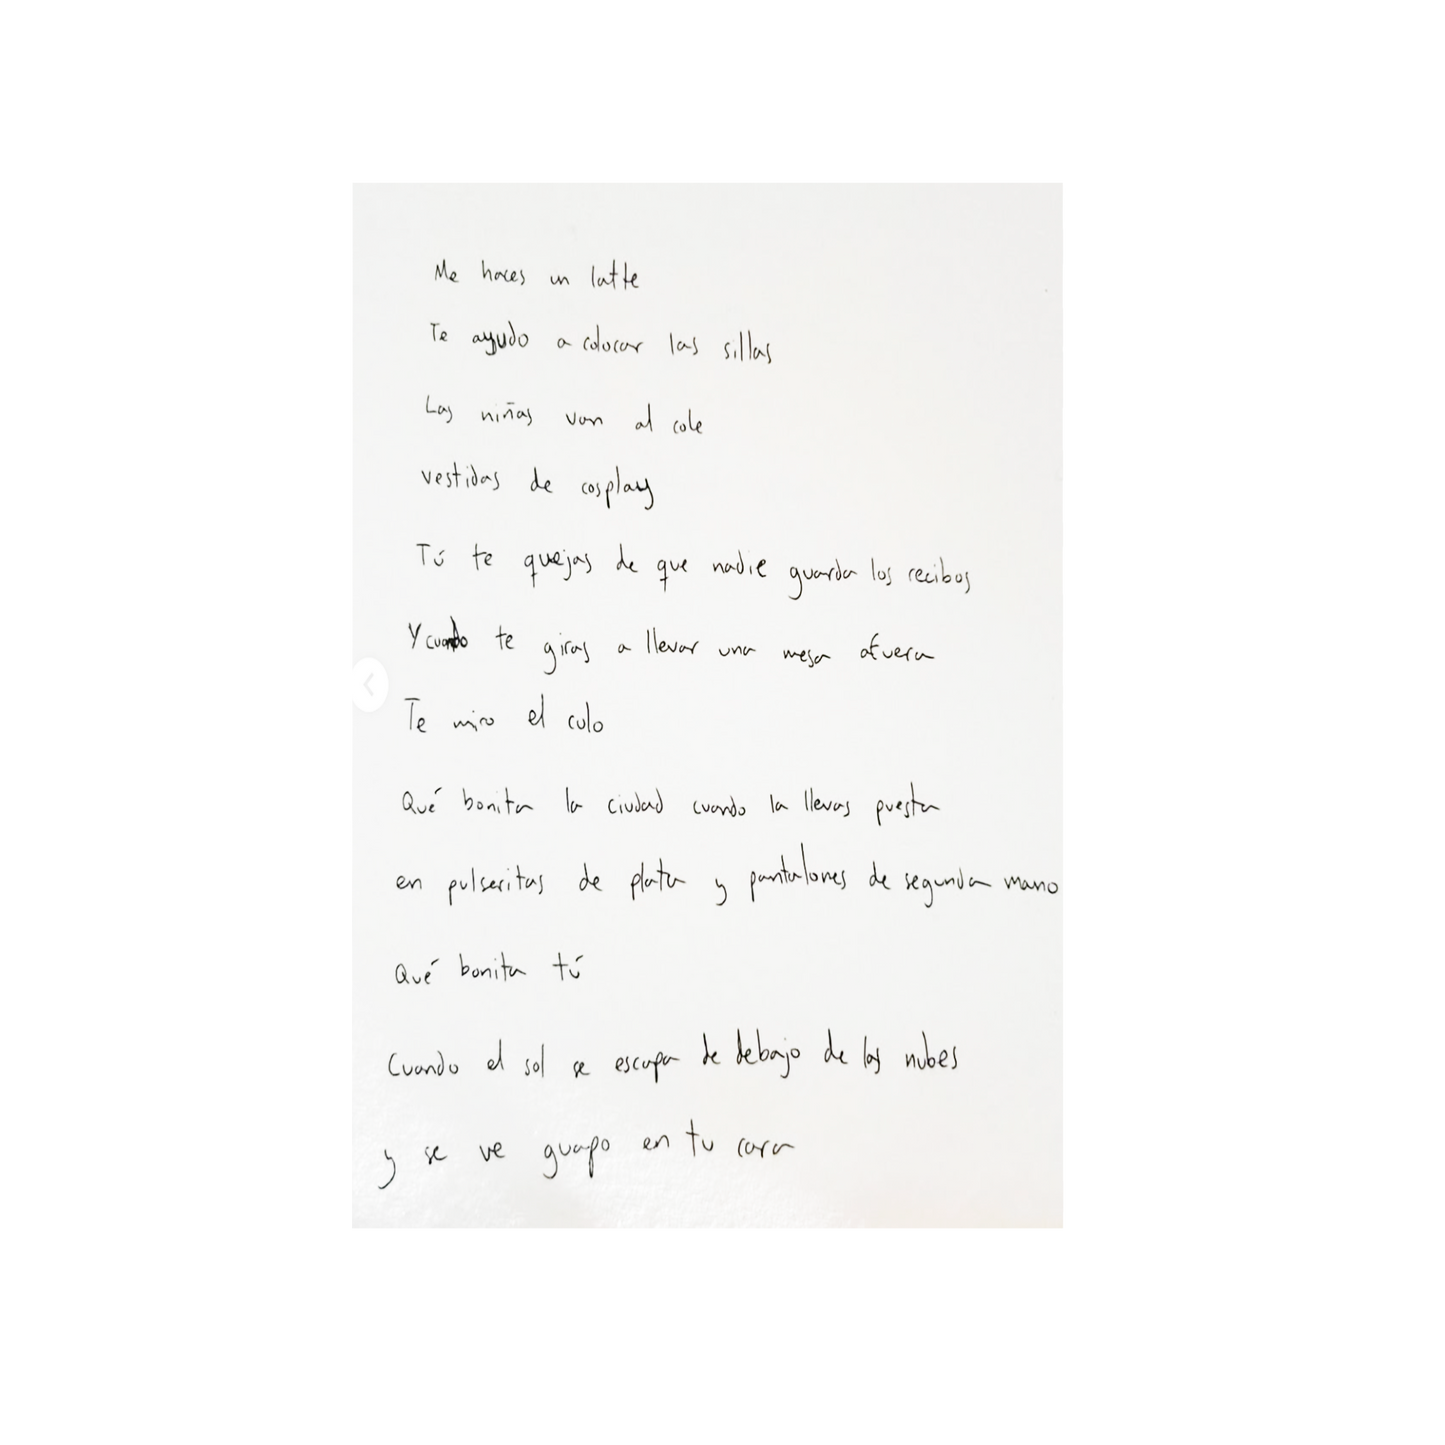 Me haces un latte
Te ayudo a colocar las sillas
Las niñas van al cole
vestidas de cosplay
Tú te quejas de que nadie guarda los recibos
Y cuando te giras a llevar una mesa afuera
Te miro el culo
Qué bonita la ciudad cuando la llevas puesta
en pulseritas de plata y pantalones de segunda mano
Qué bonita tú
Cuando el sol se escapa de debajo de las nubes
y se ve guapo en tu cara